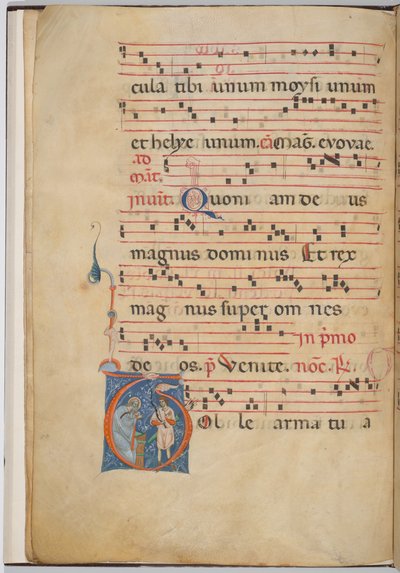 cula tibi unum moysi unum
et helye unum. cā maḡ. evovae.
ad
mat̄.
invit̄. Quoni am de us
magnus dominus Et rex
mag nus super om nes
in p̄mo
de os. p̄ Venite. noc̄e. R̄
Tol le arma tu a